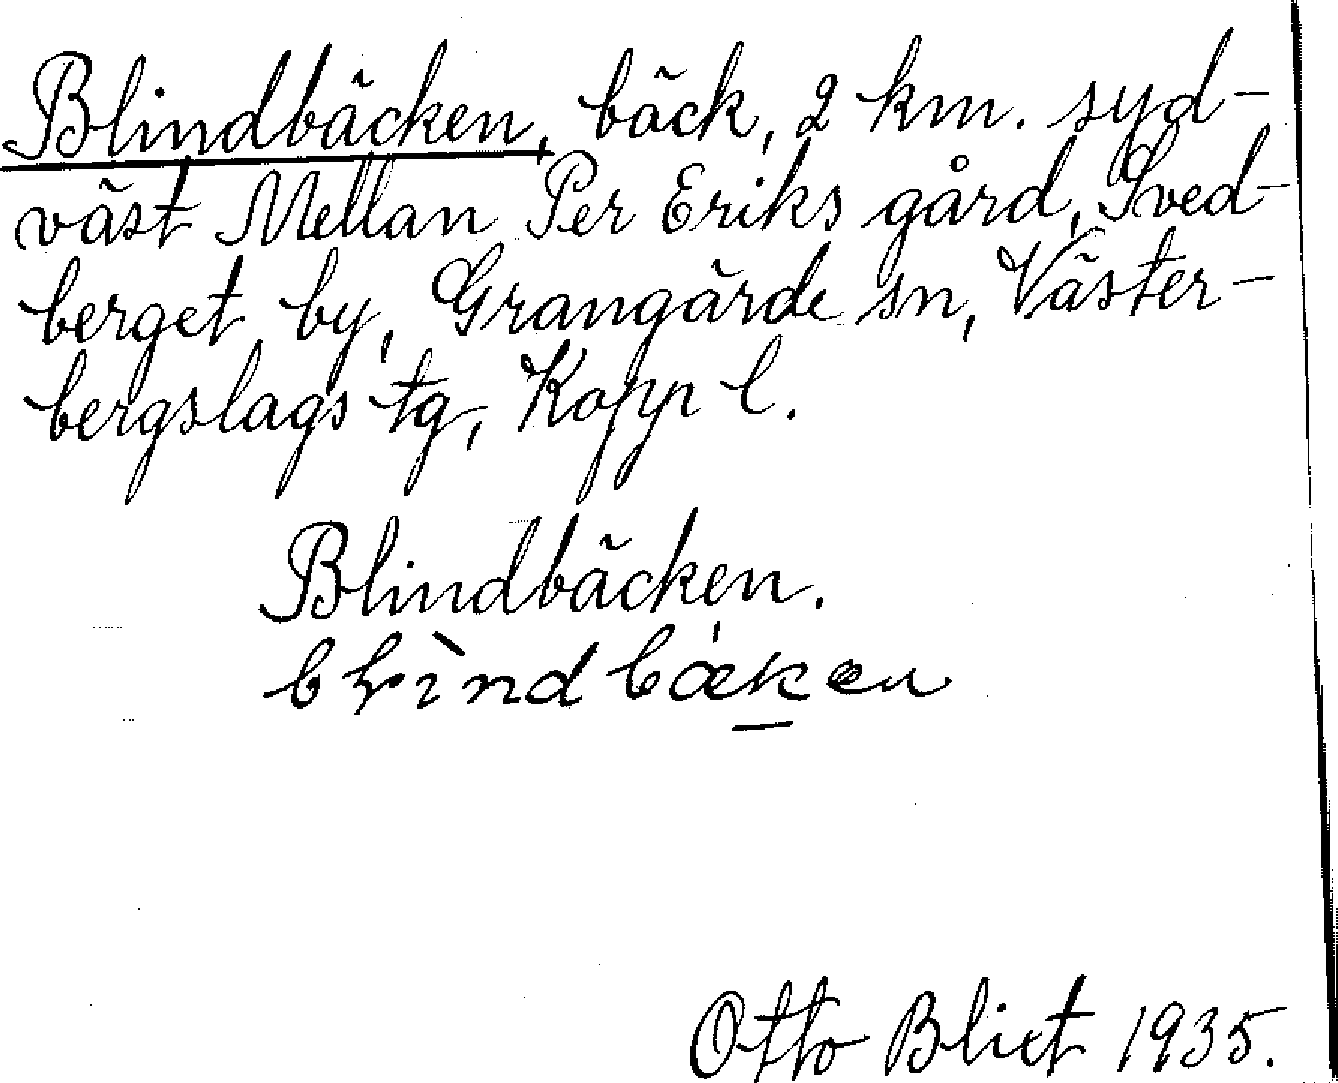 Blindbäcken, bäck, 2 km. syd-
väst Mellan Per Eriks gård, Sved-
berget by, Grangärde sn, Väster-
bergslags tg, Kopp l.
Blindbäcken.
blìndbæken
Otto Blixt 1935.